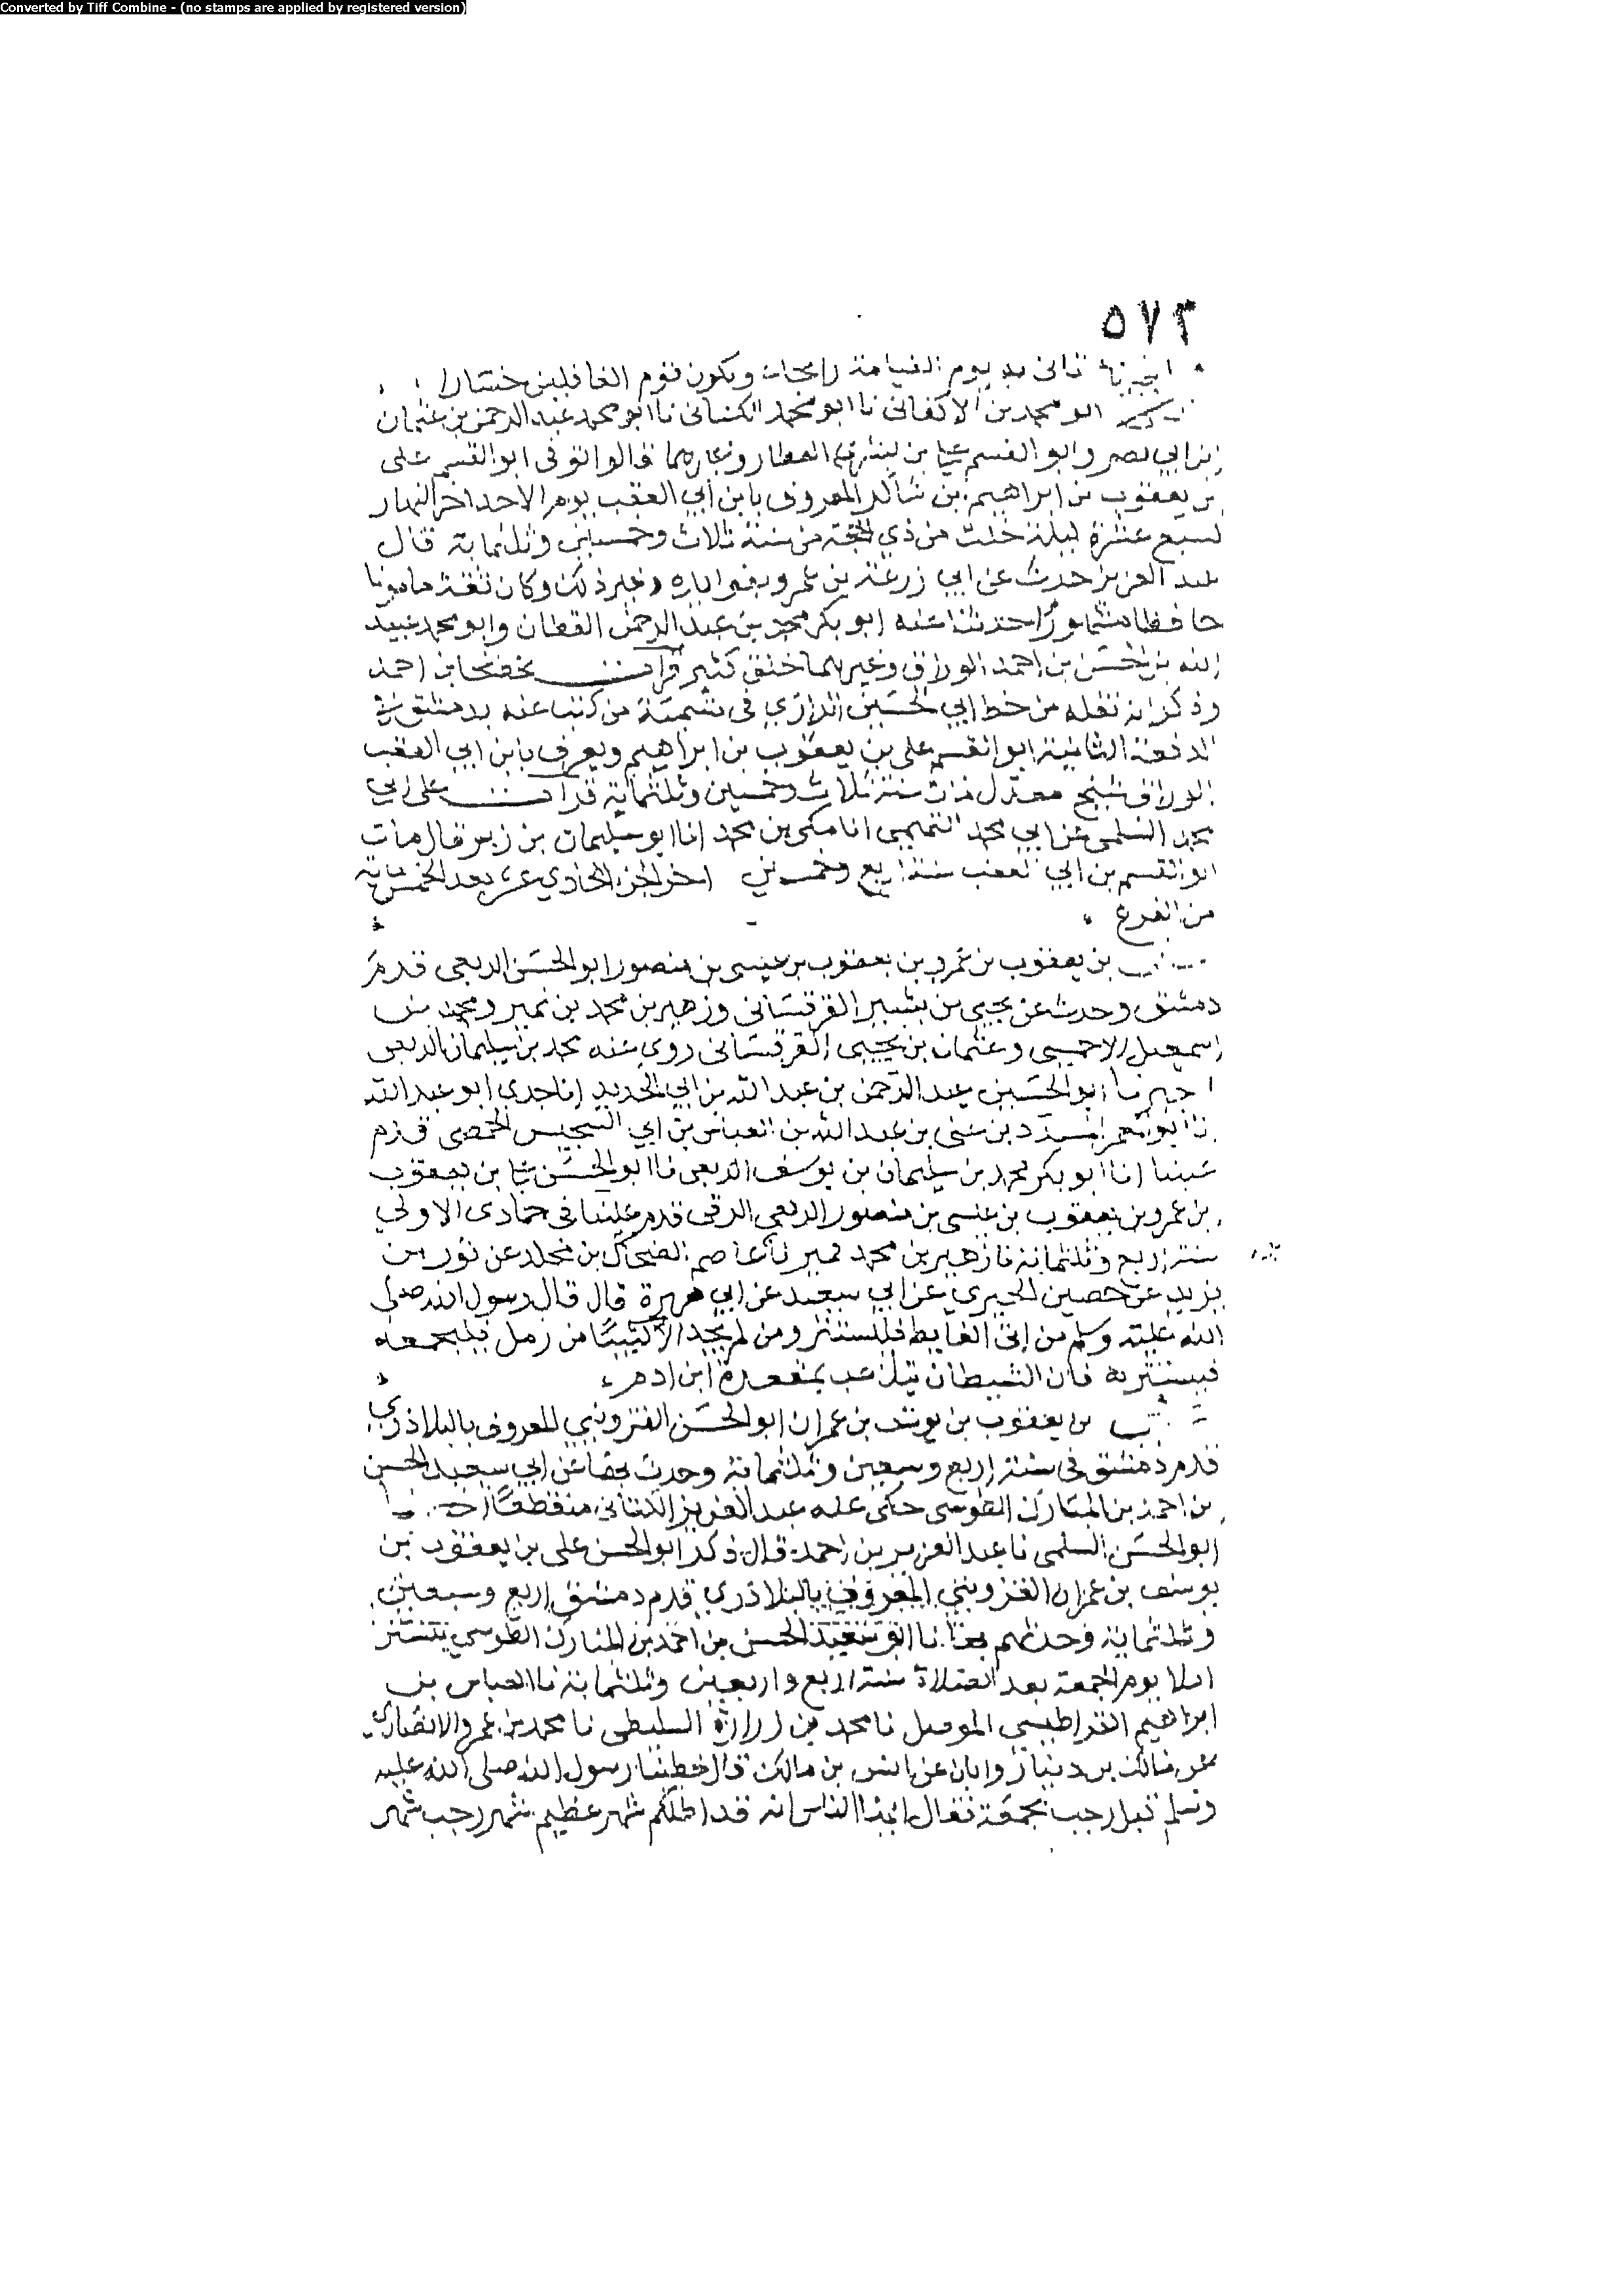 Converted by Tiff Combine - (no stamps are applied by registered version)
٥٧٣
تاتى به يوم القيامة رابحات ويكون قوم الغافلين خسارا
ابو محمد بن الاكفانى نا ابو محمد الكتانى نا ابو محمد عبد الرحمن بن عثمان
بن ابي نصر وابو القسم بن العطار وغيرهما قالوا توفى ابو القسم على
بن يعقوب بن ابراهيم بن شاكر المعروف بابن ابي العقب يوم الاحد اخر النهار
لسبع عشرة ليلة خلت من ذي الحجة من سنة ثلاث وخمسين وثلثماية قال
عبد العزيز حدث عن ابي زرعة بن عمرو وغير ذلك وكان ثقة مامونا
حافظا حدثنا عنه ابو بكر محمد بن عبد الرحمن القطان وابو محمد عبيد
الله بن الحسن بن احمد الوراق وغيرهما خلق كثير قرات بخط نجا بن احمد
وذكر انه نقله من خط ابي الحسين الرازي في تسمية من كتب عنه بدمشق في
الدفعة الثانية ابو القسم على بن يعقوب بن ابراهيم ويعرف بابن ابي العقب
الوراق شيخ معدل مات سنة ثلاث وخمسين وثلثماية قرات على ابي
محمد السلمى عن ابي محمد التميمى انا مكى بن محمد انا ابو سليمان بن زبر قال مات
ابو القسم بن ابي العقب سنة اربع وخمسين اخر الجزء الحادي عشر بعد الخمس ماية
من الفرع
بن يعقوب بن عمرو بن يعقوب بن عيسى بن منصور ابو الحسن الربعى قدم
دمشق وحدث عن يحيى بن بشير القرقسانى وزهير بن محمد بن نمير ومحمد بن
اسمعيل الاحمسى وعثمان بن يحيى القرقسانى روى عنه محمد بن سليمان الربعى
اخبرنا ابو الحسين عبد الرحمن بن عبد الله بن ابي الحديد انا جدي ابو عبد الله
نا ابو المعمر المسدد بن على بن عبد الله بن العباس بن ابي السجيس الحمصى قدم
علينا انا ابو بكر محمد بن سليمان بن يوسف الربعى نا ابو الحسن علي بن يعقوب
بن عمرو بن يعقوب بن عيسى بن منصور الربعى الرقى قدم علينا في جمادى الاولى
سنة اربع وثلثماية نا زهير بن محمد نمير نا عاصم الضحاك بن مخلد عن ثور بن
يزيد عن حصين الحميرى عن ابي سعيد عن ابي هريرة قال قال رسول الله صلى
الله عليه وسلم من اتى الغايط فليستتر ومن لم يجد الا كثيبا من رمل فليجمعه
فيستتر به فان الشيطان يتلاعب بمقعدة ابن ادم
بن يعقوب بن يوسف بن عمران ابو الحسن القزوينى المعروف بالبلاذري
قدم دمشق في سنة اربع وسبعين وثلثماية وحدث بها عن ابي سعيد الحسن
بن احمد بن المبارك الطوسى حكى عنه عبد العزيز الكتانى منقطعا
ابو الحسن السلمى نا عبد العزيز بن احمد قال ذكر ابو الحسن على بن يعقوب بن
يوسف بن عمران القزوينى المعروف بالبلاذري قدم دمشق اربع وسبعين
وثلثماية وحدثهم بها نا ابو سعيد الحسن بن احمد بن المبارك الطوسى بتستر
املا يوم الجمعة بعد الصلاة سنة اربع واربعين وثلثماية نا العباس بن
ابراهيم القراطيسى الموصل نا محمد بن زرارة السليطى نا محمد بن عمرو الانصاري
عن مالك بن دينار وابان عن انس بن مالك قال خطبنا رسول الله صلى الله عليه
وسلم قبل رجب بجمعة فقال ايها الناس انه قد اظلكم شهر عظيم شهر رجب شهر